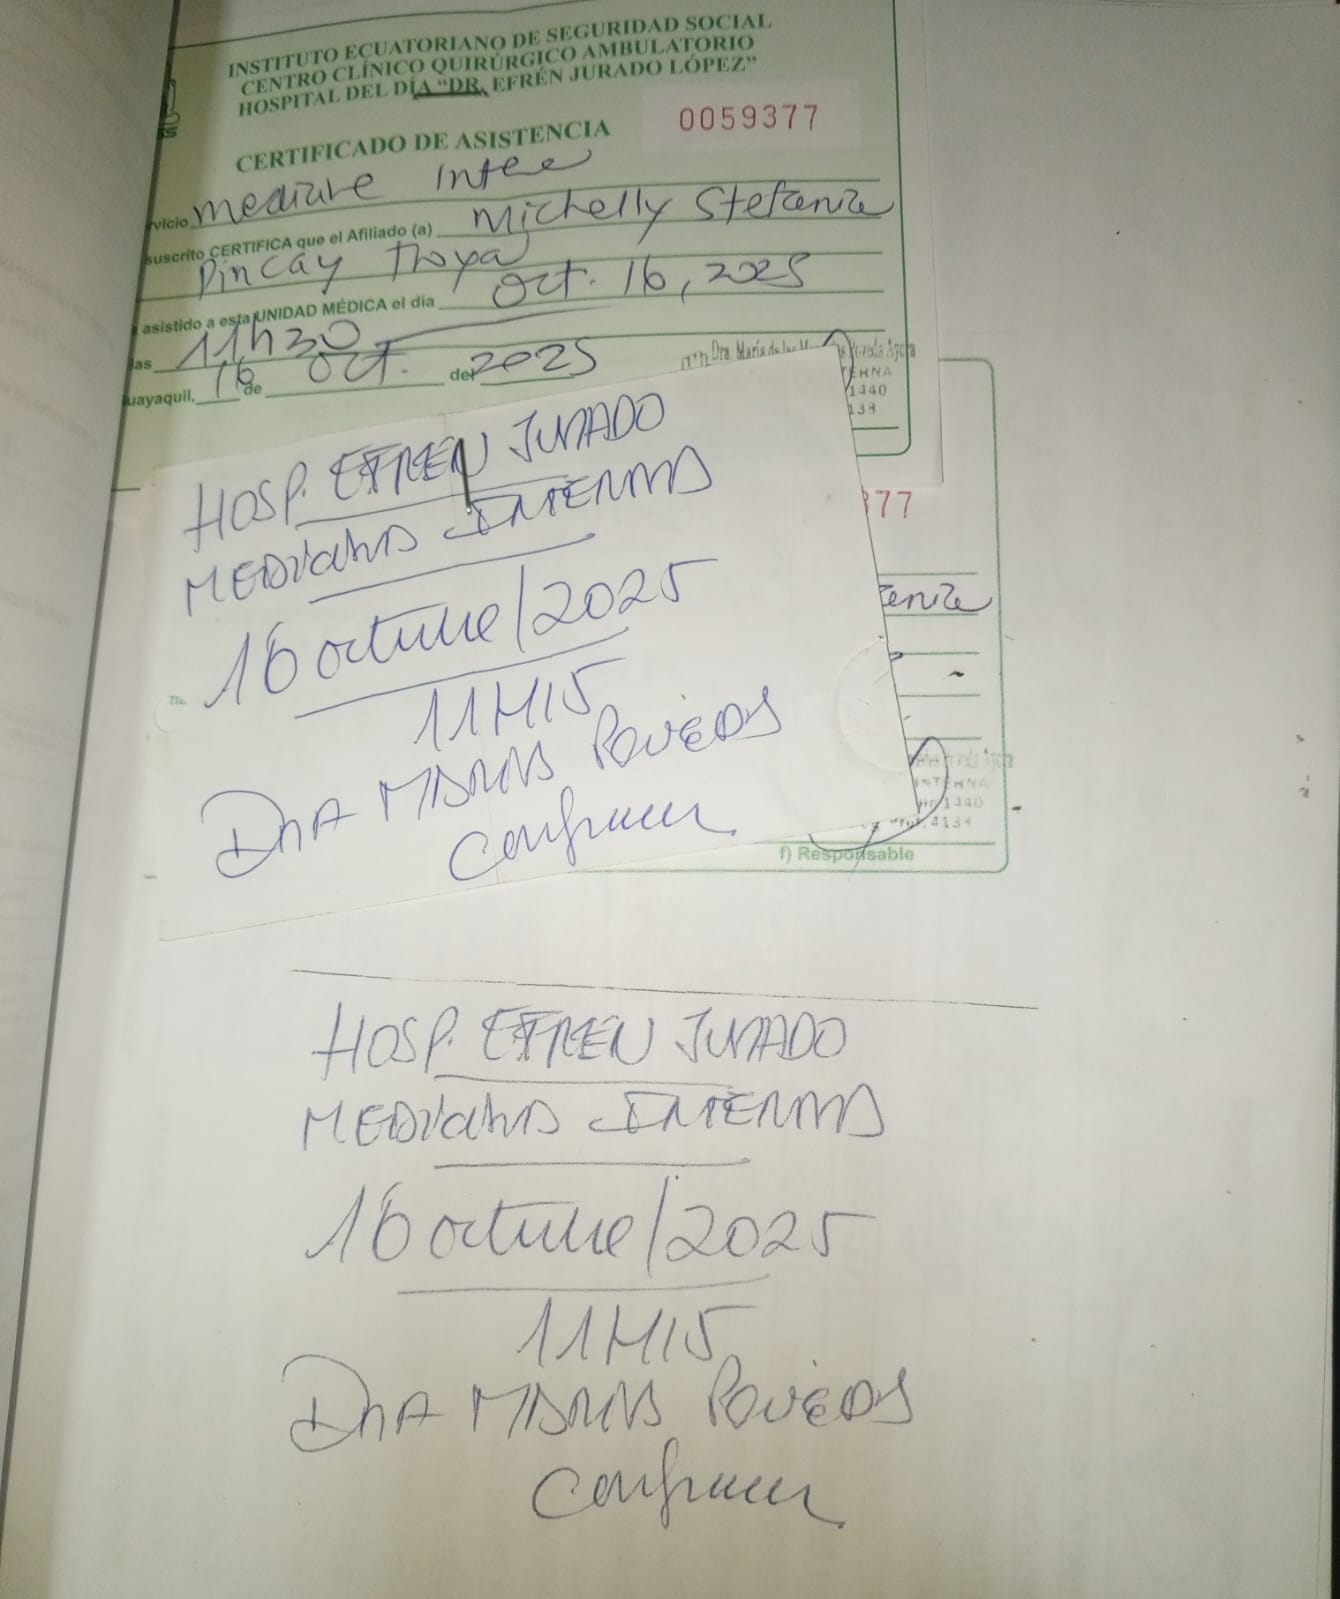 INSTITUTO ECUATORIANO DE SEGURIDAD SOCIAL
CENTRO CLÍNICO QUIRÚRGICO AMBULATORIO
HOSPITAL DEL DÍA "DR. EFRÉN JURADO LÓPEZ"
CERTIFICADO DE ASISTENCIA
0059377
rvicio
suscrito CERTIFICA que el Afiliado (a) Michelly Stefania
Pincay
asistido a esta UNIDAD MÉDICA el día Oct. 16, 2025
las 11h30
uayaquil, 16 de Oct. de 2025
Dra. María de
ERNA
1440
139
HOSP. EFREN JURADO
MEDICINA INTERNA
16 octubre/2025
11H15
DRA MARIA POVEDA
Confirmar
377
enia
INTERNA
1440
4134
f) Responsable
HOSP. EFREN JURADO
MEDICINA INTERNA
16 octubre/2025
11H15
DRA MARIA POVEDA
Confirmar